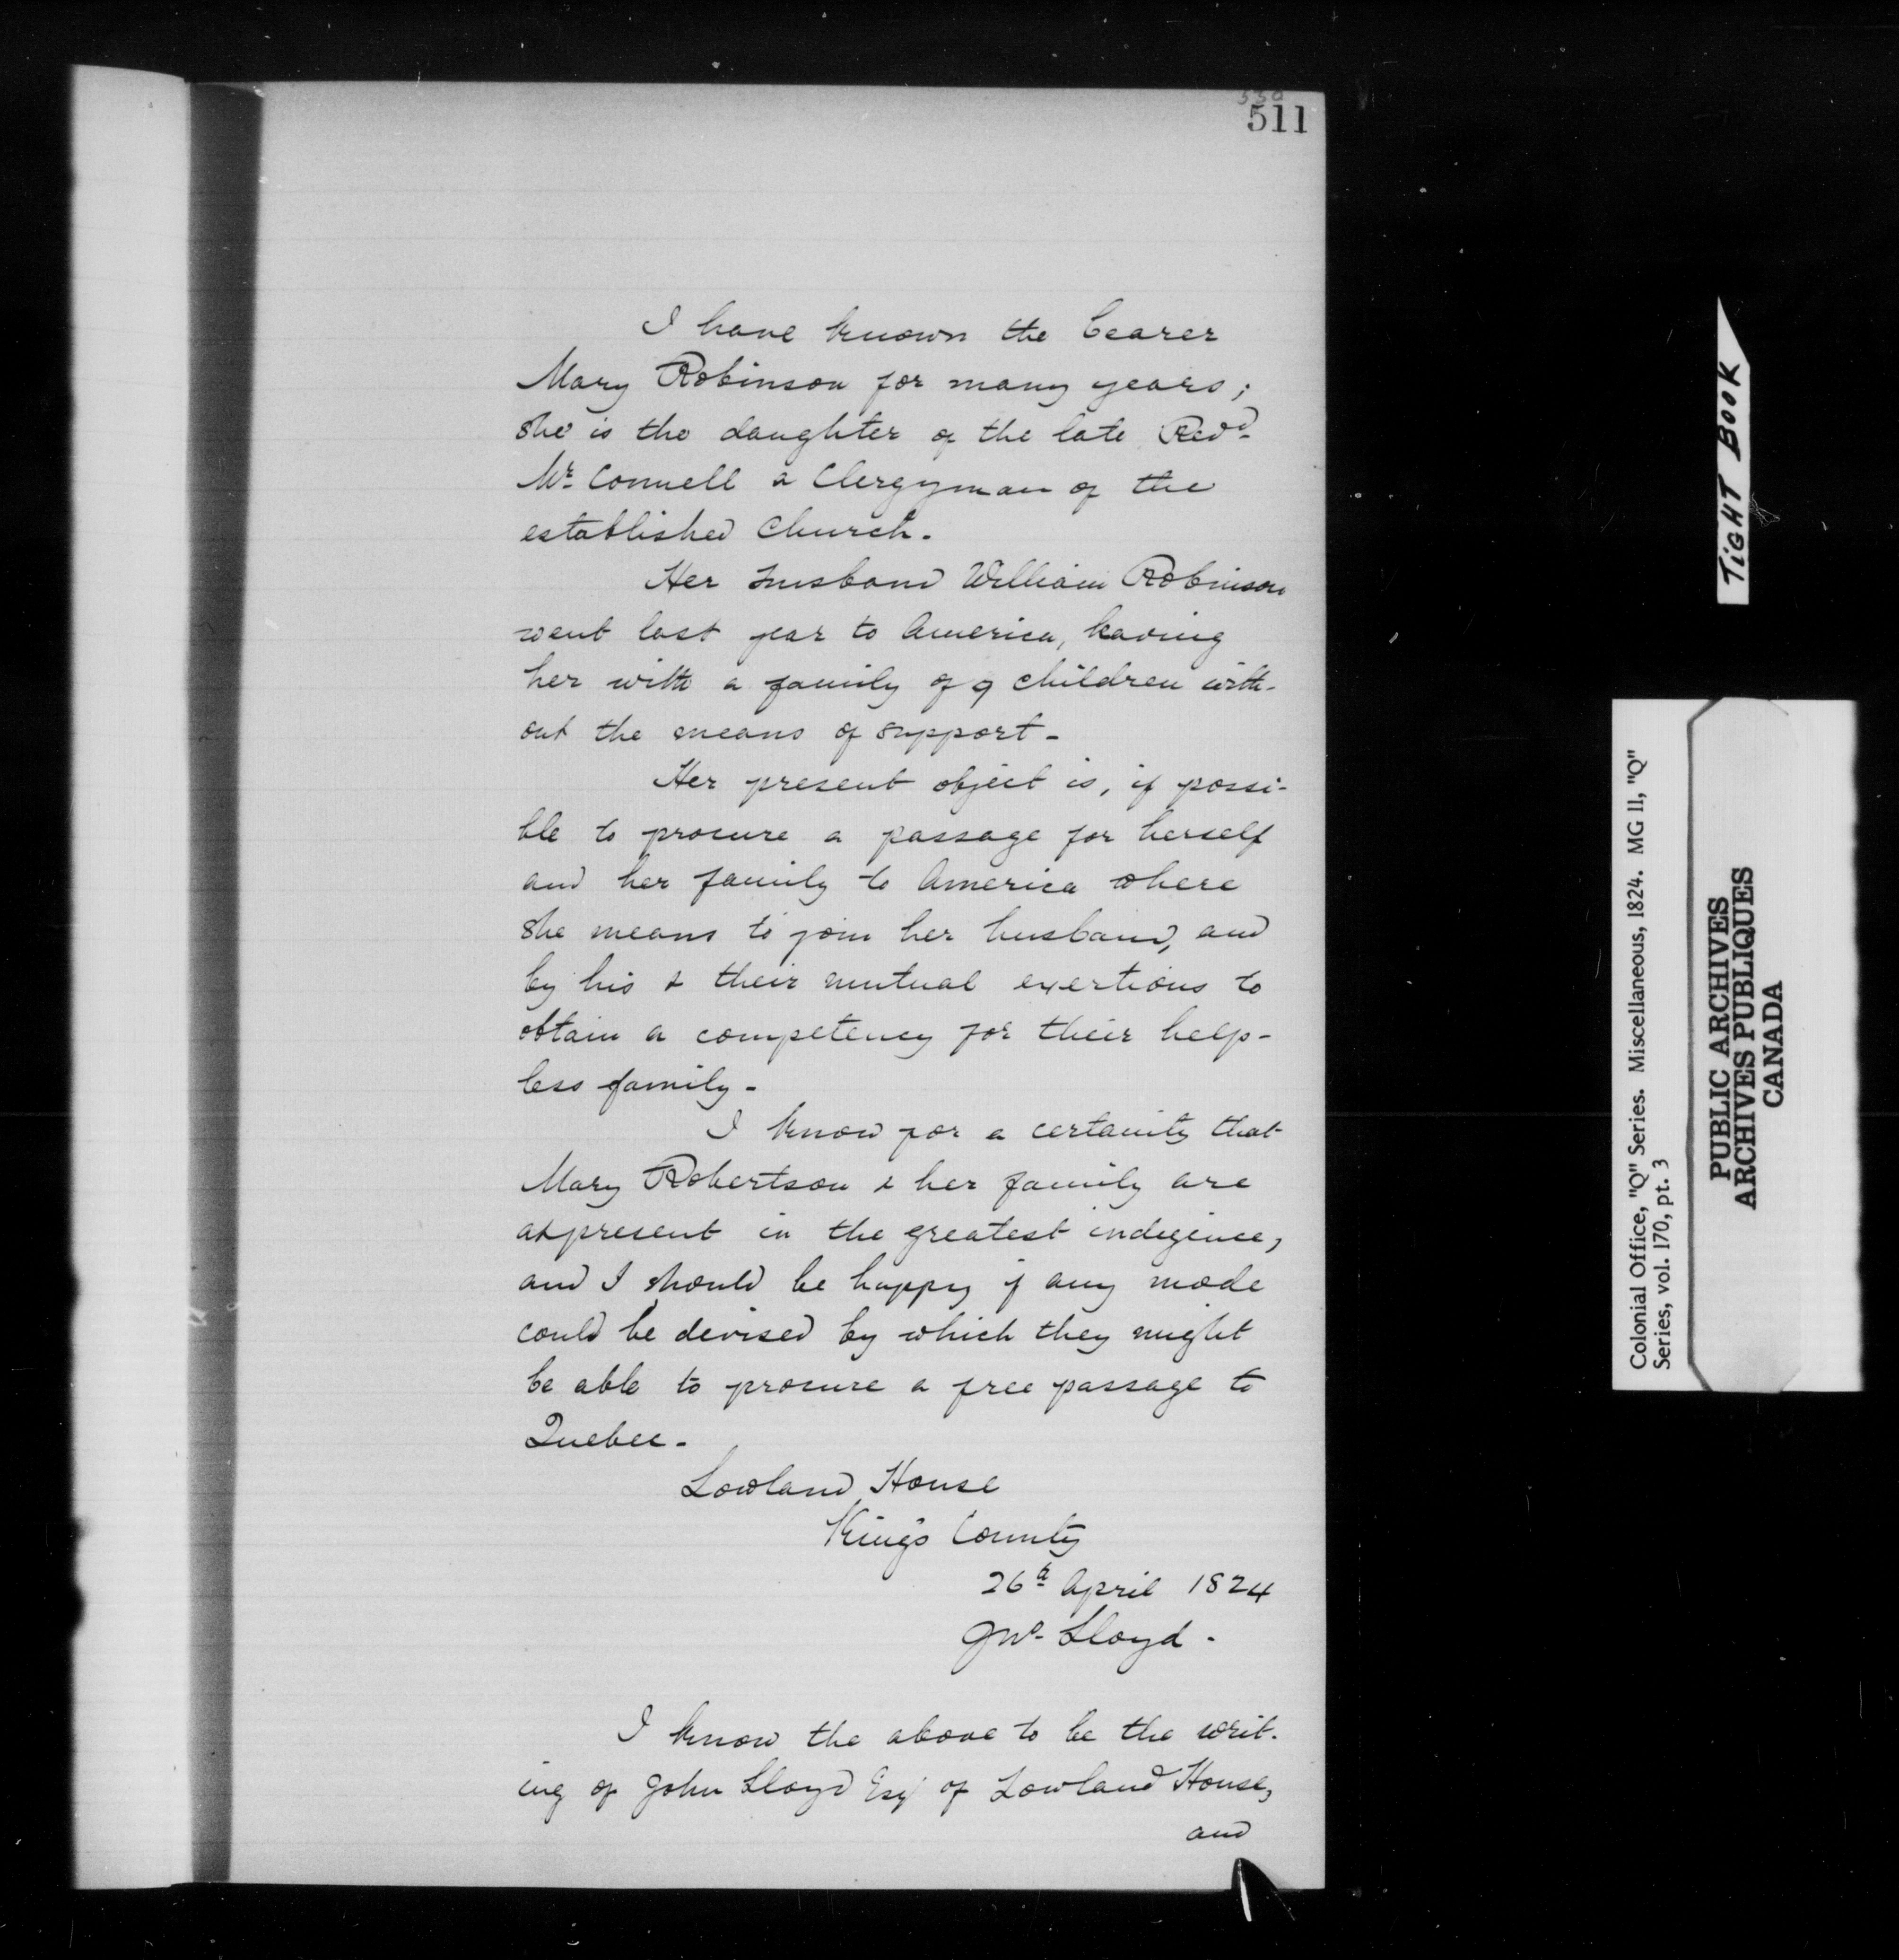 530
511
I have known the bearer
Mary Robinson for many years;
she is the daughter of the late Revd.
Mr. Connell a Clergyman of the
established Church.
Her husband William Robinson
went last year to America, leaving
her with a family of 9 children with-
out the means of support-
Her present object is, if possi-
ble to procure a passage for herself
and her family to America where
she means to join her husband, and
by his & their mutual exertions to
obtain a competency for their help-
less family-
I know for a certainty that
Mary Robertson & her family are
at present in the greatest indigence,
and I should be happy if any mode
could be devised by which they might
be able to procure a free passage to
Quebec-
Lowland House
King's County
26th April 1824
Jno. Lloyd.
I know the above to be the writ-
ing of John Lloyd Esq of Lowland House,
and
TIGHT BOOK
Colonial Office, "Q" Series. Miscellaneous, 1824. MG 11, "Q"
Series, vol. 170, pt. 3
PUBLIC ARCHIVES
ARCHIVES PUBLIQUES
CANADA